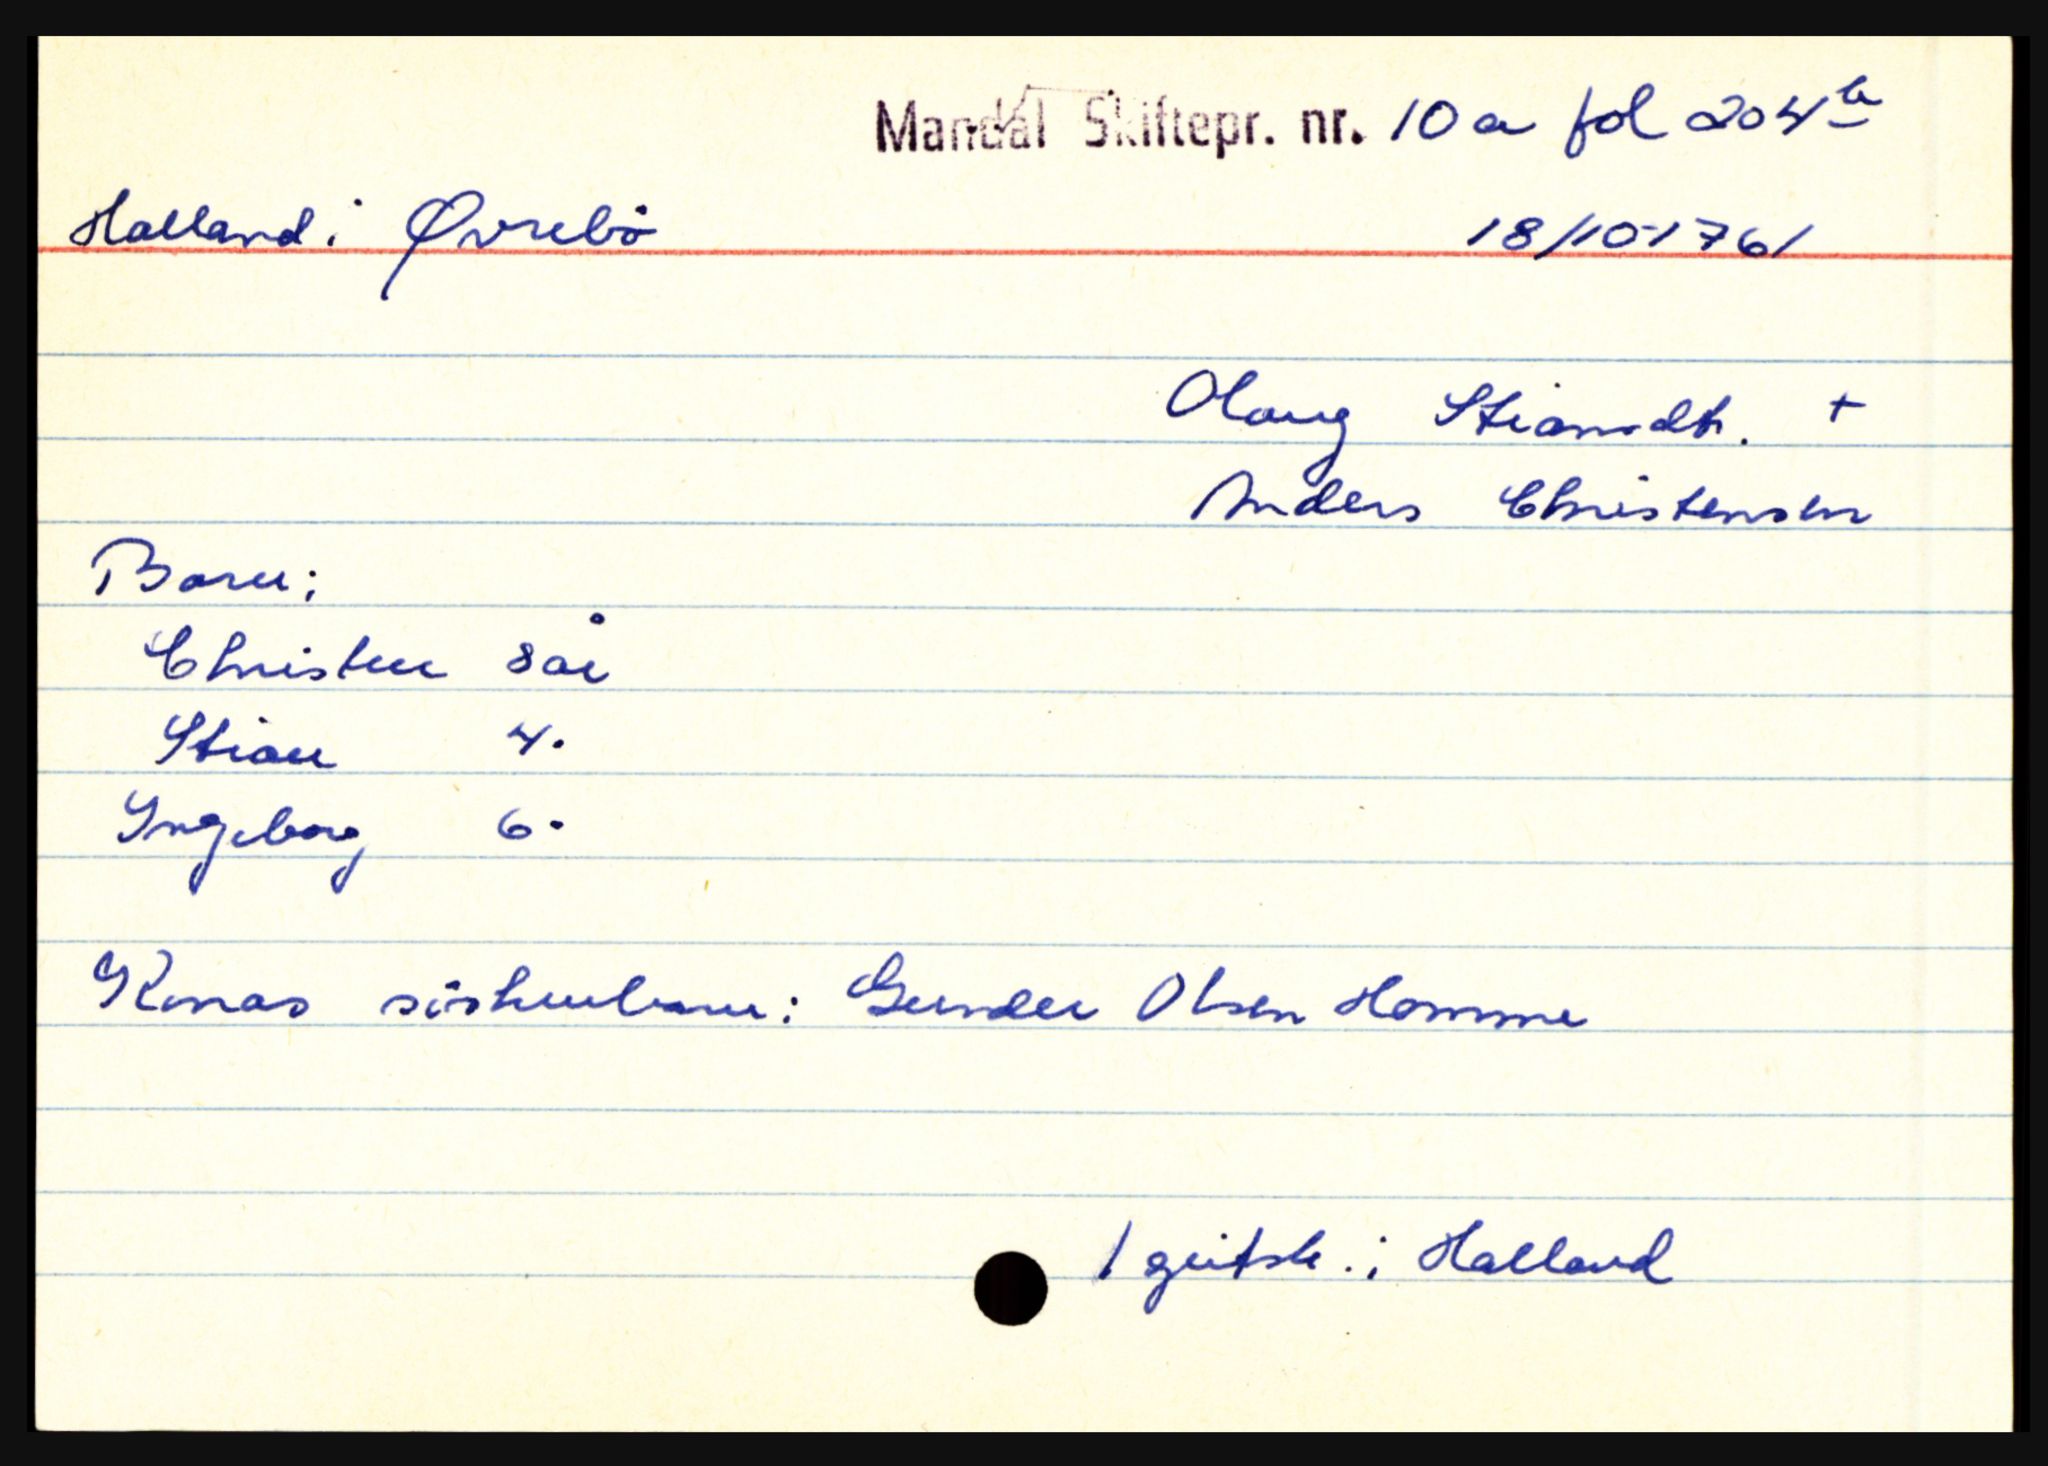 Mandal Skiftepr. nr. 10 a fol 204 b
Halland i Øvrebö 18/10-1761
Olaug Stiansdt. +
Anders Christensen
Barn:
Christen 8 år
Stian 4.
Ingeborg 6.
Konas söskenbarn: Gunder Olsen Homme
1 geitsk. i Halland